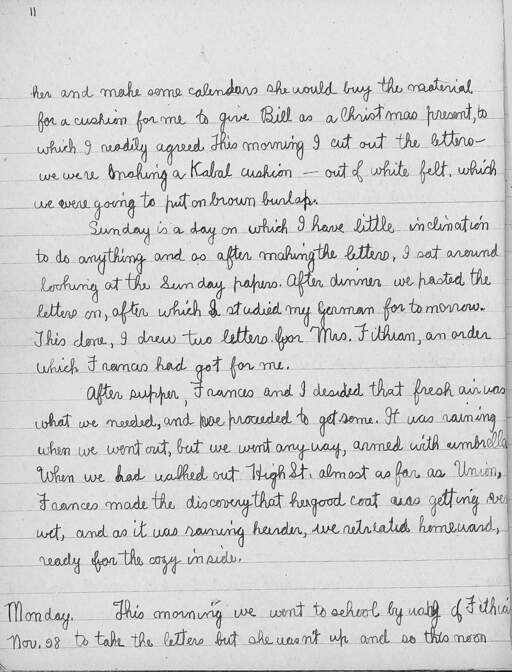 11
her and make some calendars she would buy the material
for a cushion for me to give Bill as a Christmas present, to
which I readily agreed. This morning I cut out the letters –
we were making a Kabal cushion – out of white felt, which
we were going to put on brown burlap.
Sunday is a day on which I have little inclination
to do anything and so after making the letters, I sat around
looking at the Sunday papers. After dinner we pasted the
letters on, after which I studied my German for to morrow.
This done, I drew two letters for Mrs. Fithian, an order
which Frances had got for me.
After supper, Frances and I desided that fresh air was
what we needed, and we proceeded to get some. It was raining
when we went out, but we went any way, armed with umbrella
When we had walked out High St. almost as far as Union,
Frances made the discovery that her good coat was getting
wet, and as it was raining harder, we retreated homeward,
ready for the cozy inside.
Monday. This morning we went to school by way of Fithia
Nov. 28 to take the letters but she wasn't up and so this noon